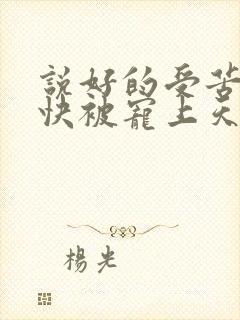 説好的受苦
快被寵上天
楊光